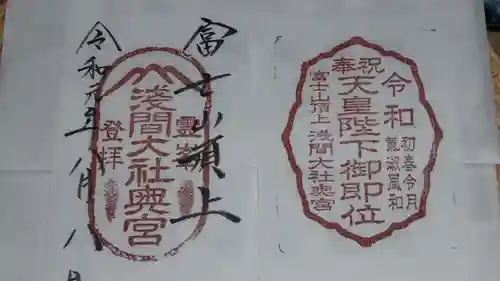 奉祝
天皇陛下御即位
令和
初春令月
氣淑風和
富士山頂上 淺間大社奥宮
富士山頂上
靈峰
淺間大社奥宮
登拝
令和元年八月八日